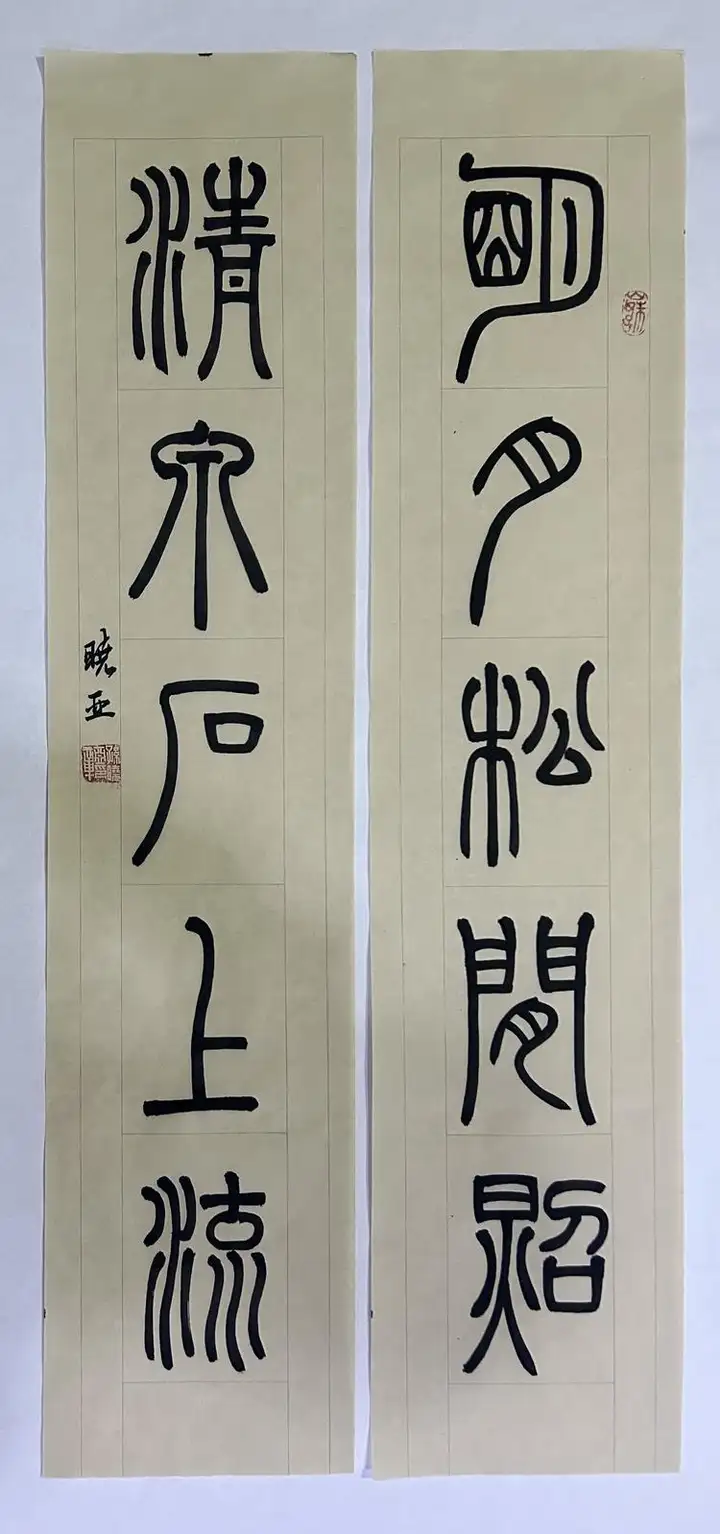 明月松間照
清泉石上流
晓亚